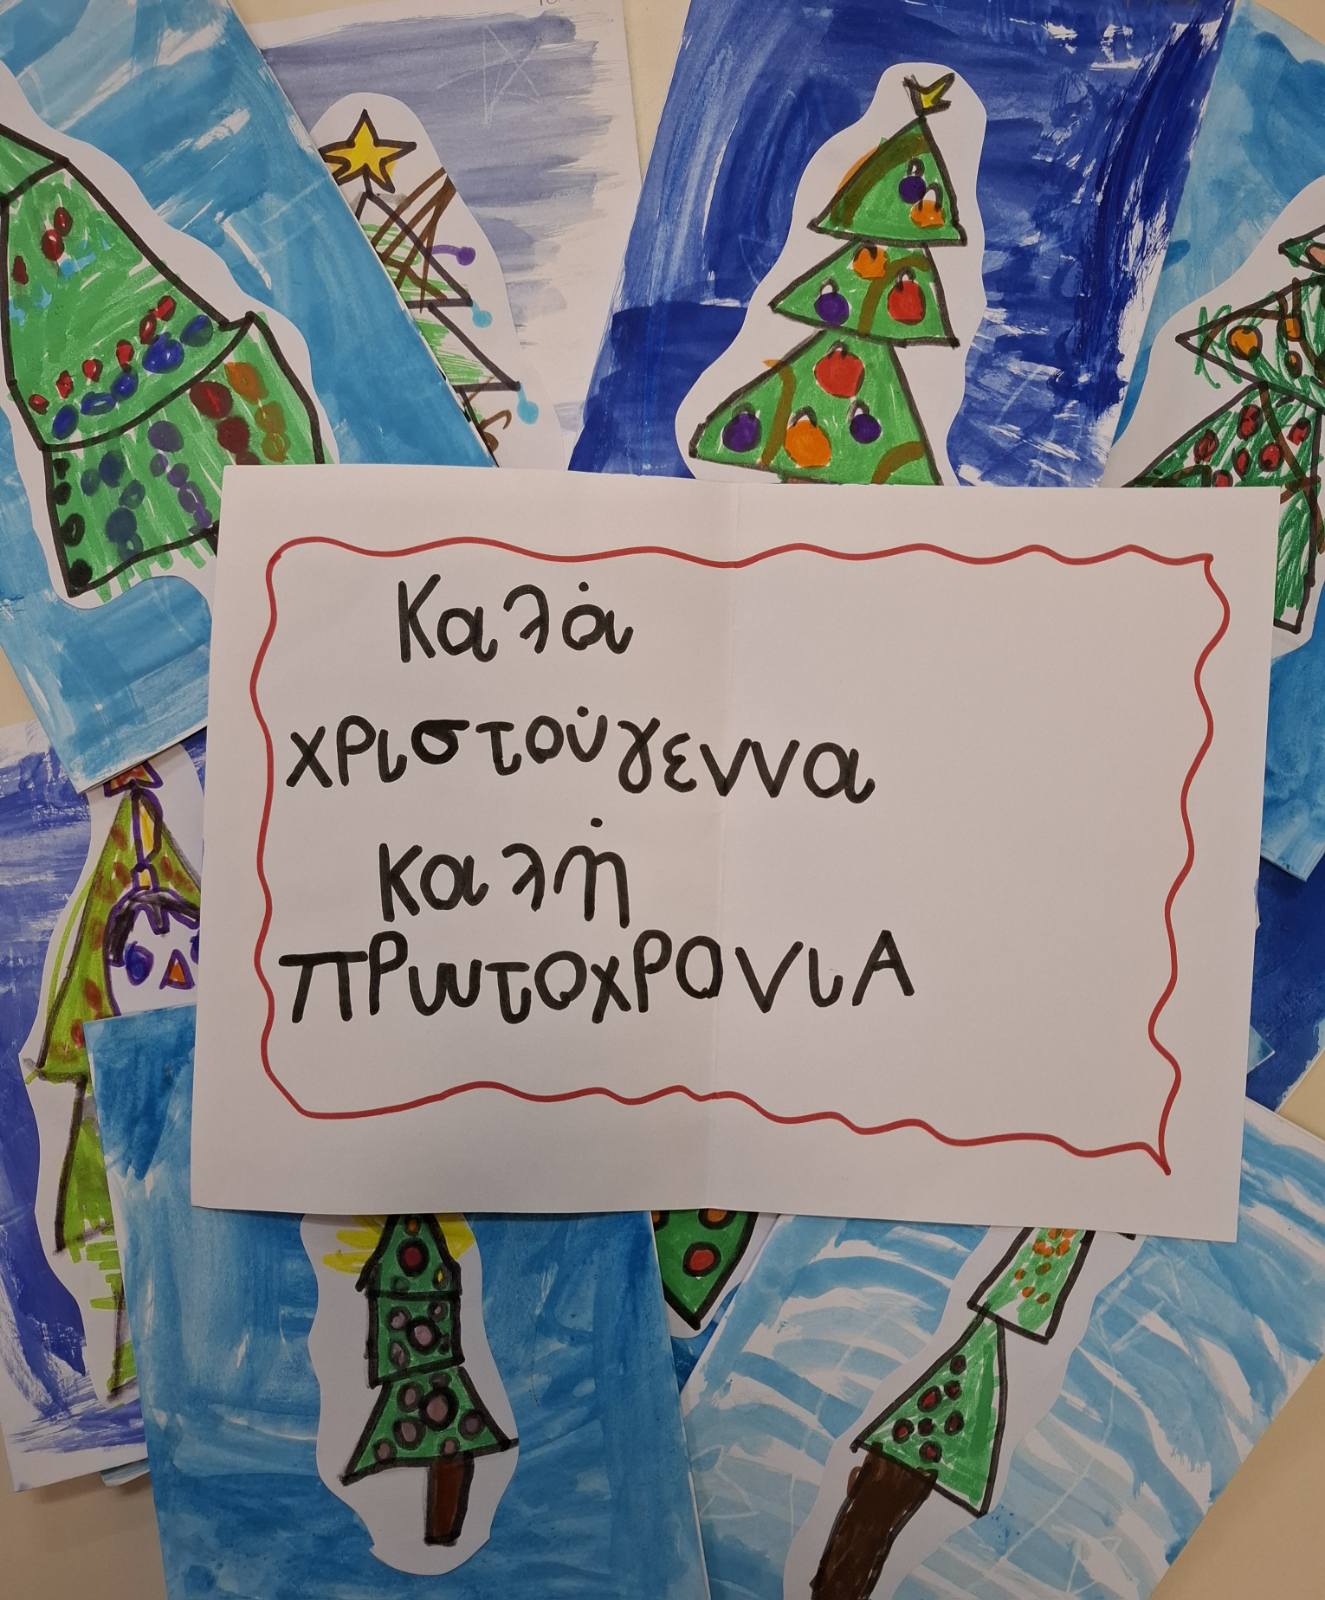 Καλά
χριστούγεννα
καλή
πρωτοχρονιΑ